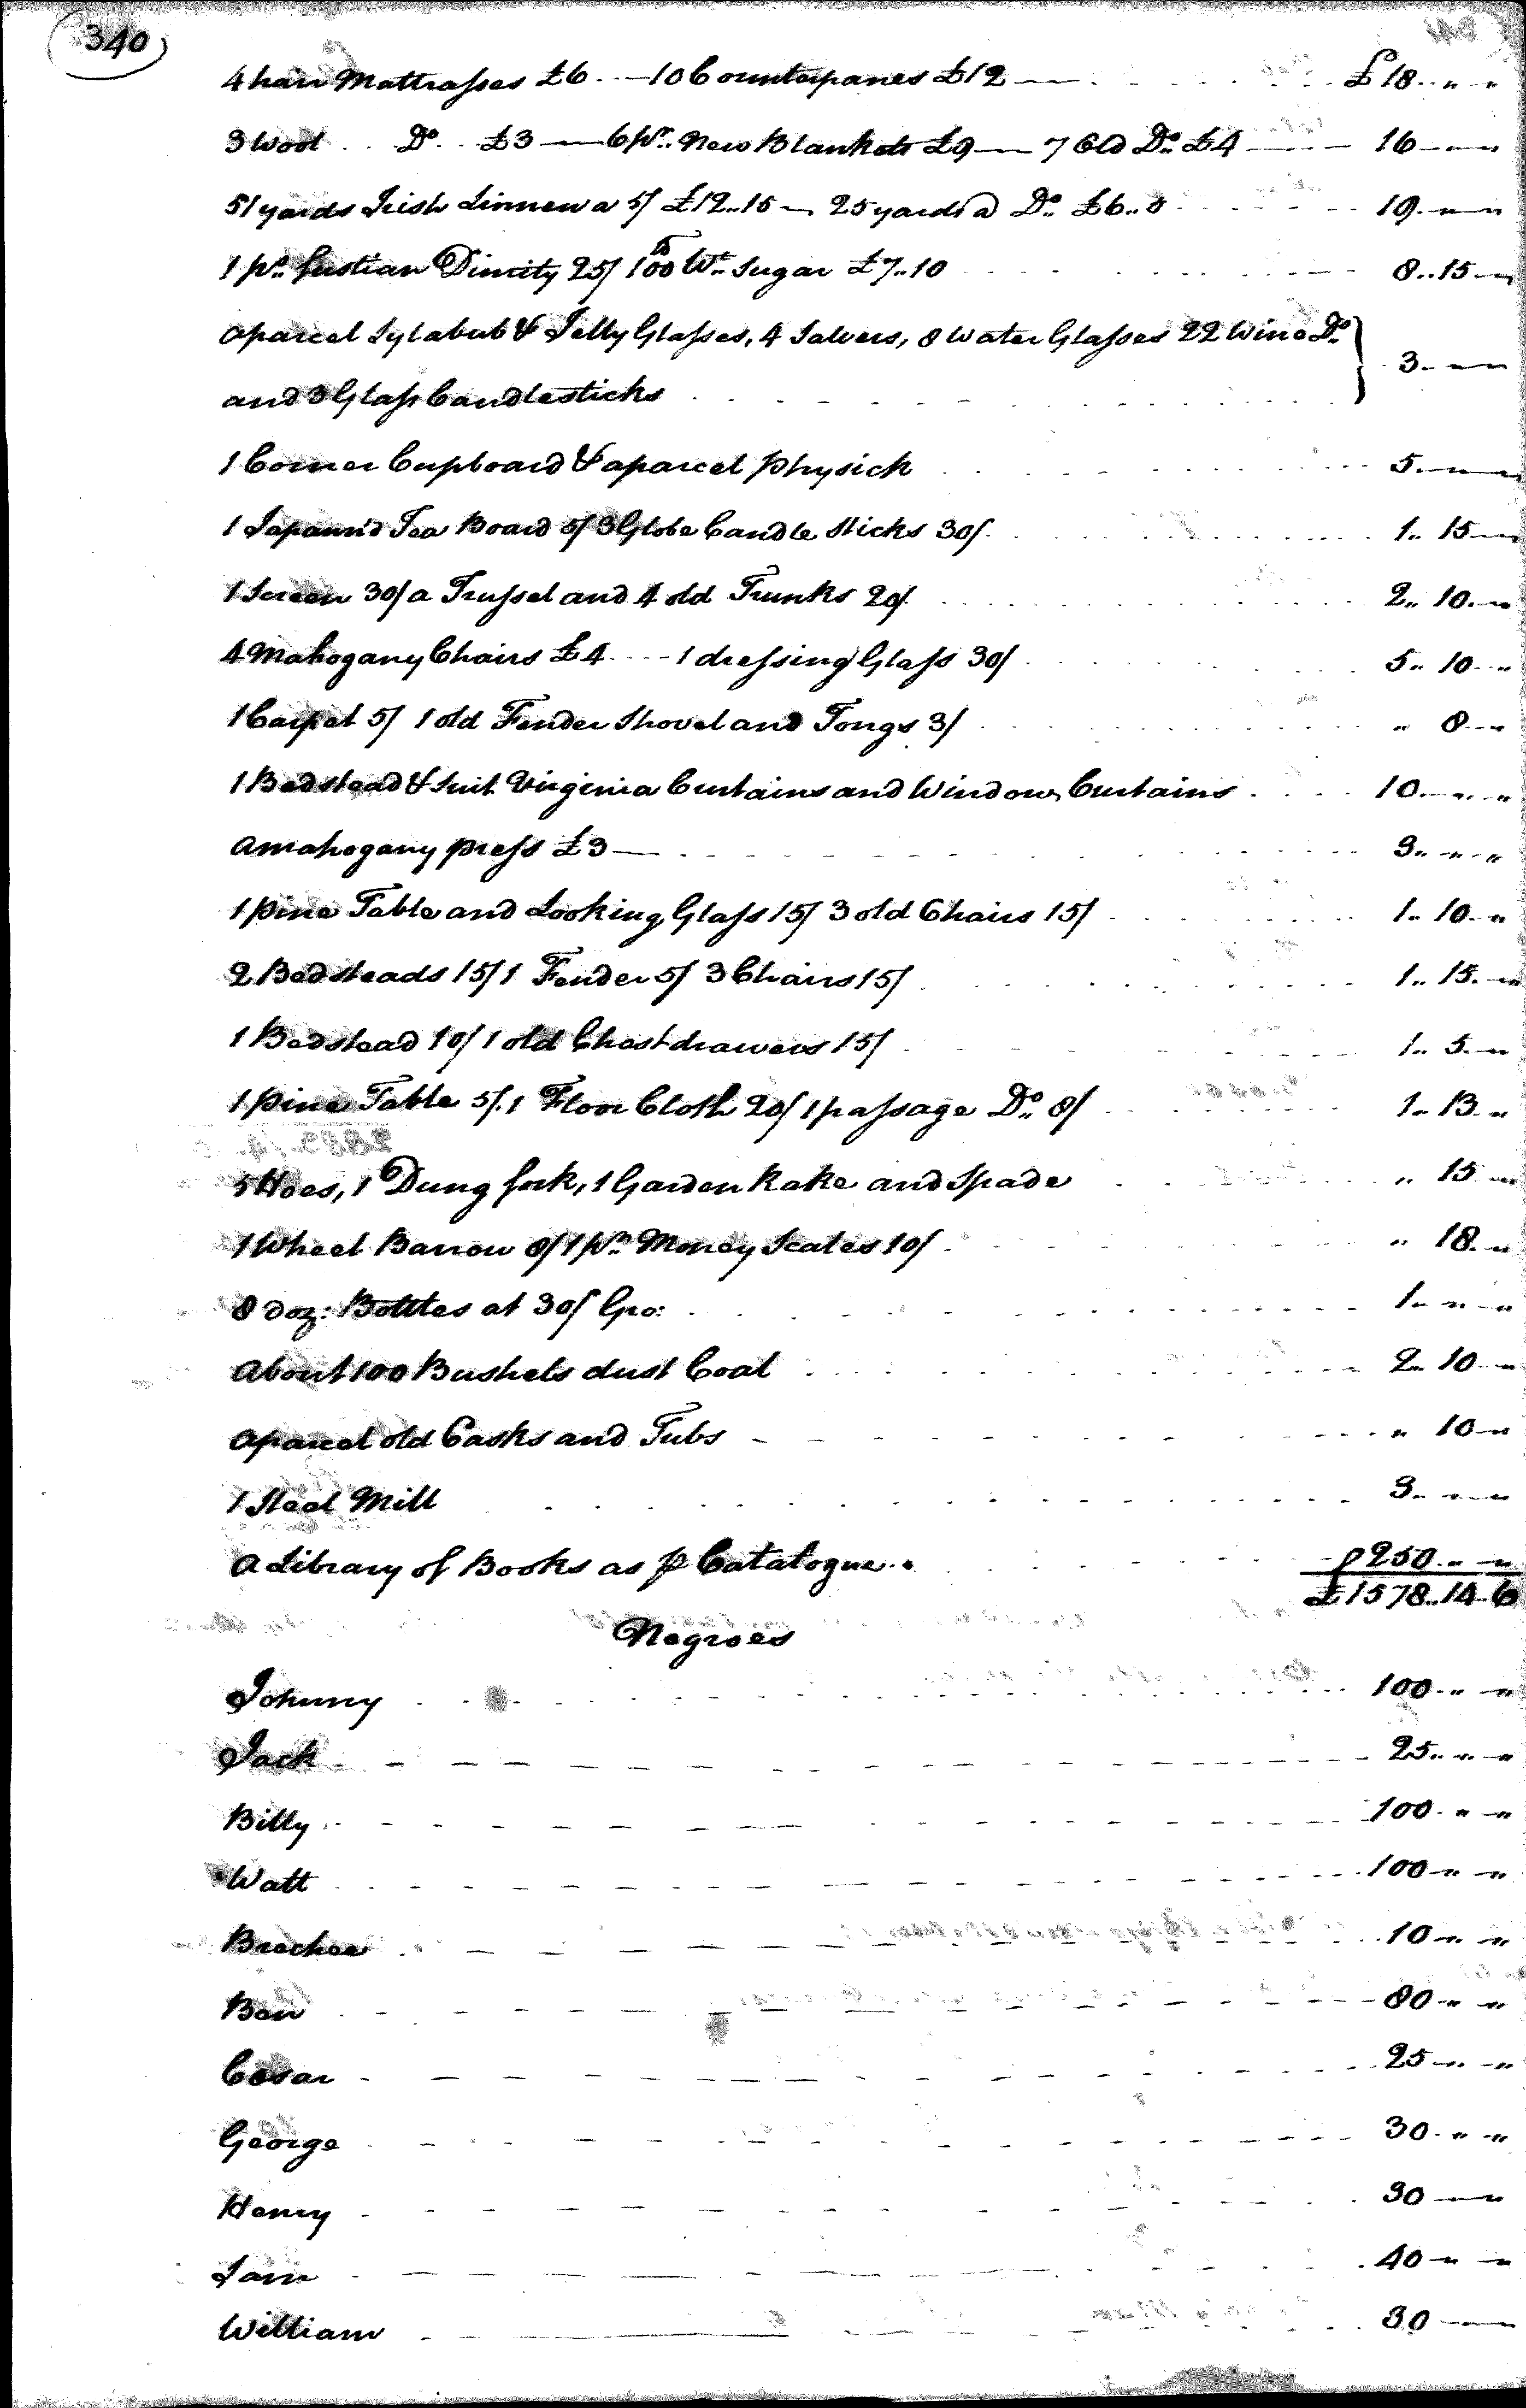 340
4 hair Mattrasses £6 .. — 10 Counterpanes £12 — £18 .. " "
3 Wool .. Do. .. £3 — 6 pr. New Blankets £9 — 7 Old Do. £4 — 16 — " "
51 yards Irish Linnen a 5/ £12..15 — 25 yards a Do. £6..5 19. — " "
1 ps. fustian Dimity 25/ 100 lb Wt. Sugar £7..10 8..15 — "
a parcel Sylabub & Jelly Glasses, 4 Salvers, 8 Water Glasses 22 Wine Do.
and 3 Glass Candlesticks } 3. — " "
1 Corner Cupboard & a parcel Physick 5. — " "
1 Japann'd Tea Board 5/ 3 Globe Candle Sticks 30/. 1.. 15 — "
1 Screen 30/ a Trussel and 4 old Trunks 20/. 2.. 10. — "
4 Mahogany Chairs £4 .. — 1 dressing Glass 30/ 5.. 10 .. "
1 Carpet 5/ 1 old Fender Shovel and Tongs 3/ " 8 — "
1 Bedstead & Suit Virginia Curtains and Window Curtains 10. — " .. "
a mahogany press £3 — 3.. — " .. "
1 pine Table and Looking Glass 15/ 3 old Chairs 15/ 1.. 10. — "
2 Bedsteads 15/ 1 Fender 5/ 3 Chairs 15/ 1.. 15. — "
1 Bedstead 10/ 1 old Chest drawers 15/ 1.. 5. — "
1 pine Table 5/. 1 Floor Cloth 20/ 1 passage Do. 8/ 1.. 13 .. "
5 Hoes, 1 Dung fork, 1 Garden Rake and Spade " 15 — "
1 Wheel Barrow 8/ 1 pr. Money Scales 10/ " 18. — "
8 doz: Bottles at 30/ Gro: 1.. " — "
About 100 Bushels dust Coal 2.. 10 — "
a parcel old Casks and Tubs " 10 — "
1 Steel Mill 3.. — " "
A Library of Books as p Catalogue .. 250 .. " — "
£1578..14..6
Negroes
Johnny 100 .. " — "
Jack 25.. " — "
Billy 100 . " — "
Watt 100 — " — "
Brechee 10 — " — "
Ben 80 — " — "
Cesar 25 — " — "
George 30 . " — "
Henry 30 — " "
Sam 40 — " — "
William 30 — "